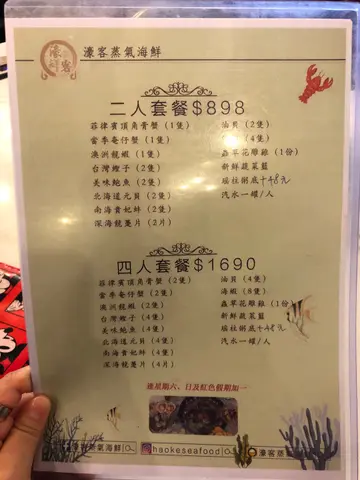 濠客蒸氣海鮮
二人套餐$898
菲律賓頂角膏蟹 (1隻)
當季奄仔蟹 (1隻)
澳洲龍蝦 (1隻)
台灣蟶子 (2隻)
美味鮑魚 (2隻)
北海道元貝 (2隻)
南海貴妃蚌 (2隻)
深海龍躉片 (2片)
油貝 (2隻)
(4隻)
蟲草花雞 (1份)
新鮮蔬菜籃
瑤柱粥底+48元
汽水一罐/人
四人套餐$1690
菲律賓頂角膏蟹 (2隻)
當季奄仔蟹 (2隻)
澳洲龍蝦 (2隻)
台灣蟶子 (4隻)
美味鮑魚 (4隻)
北海道元貝 (4隻)
南海貴妃蚌 (4隻)
深海龍躉片 (4片)
油貝 (4隻)
海蝦 (8隻)
蟲草花雞 (1份)
新鮮蔬菜籃
瑤柱粥底+48元
汽水一罐/人
逢星期六、日及紅色假期加一
濠客蒸氣海鮮
haokeseafood
濠客蒸